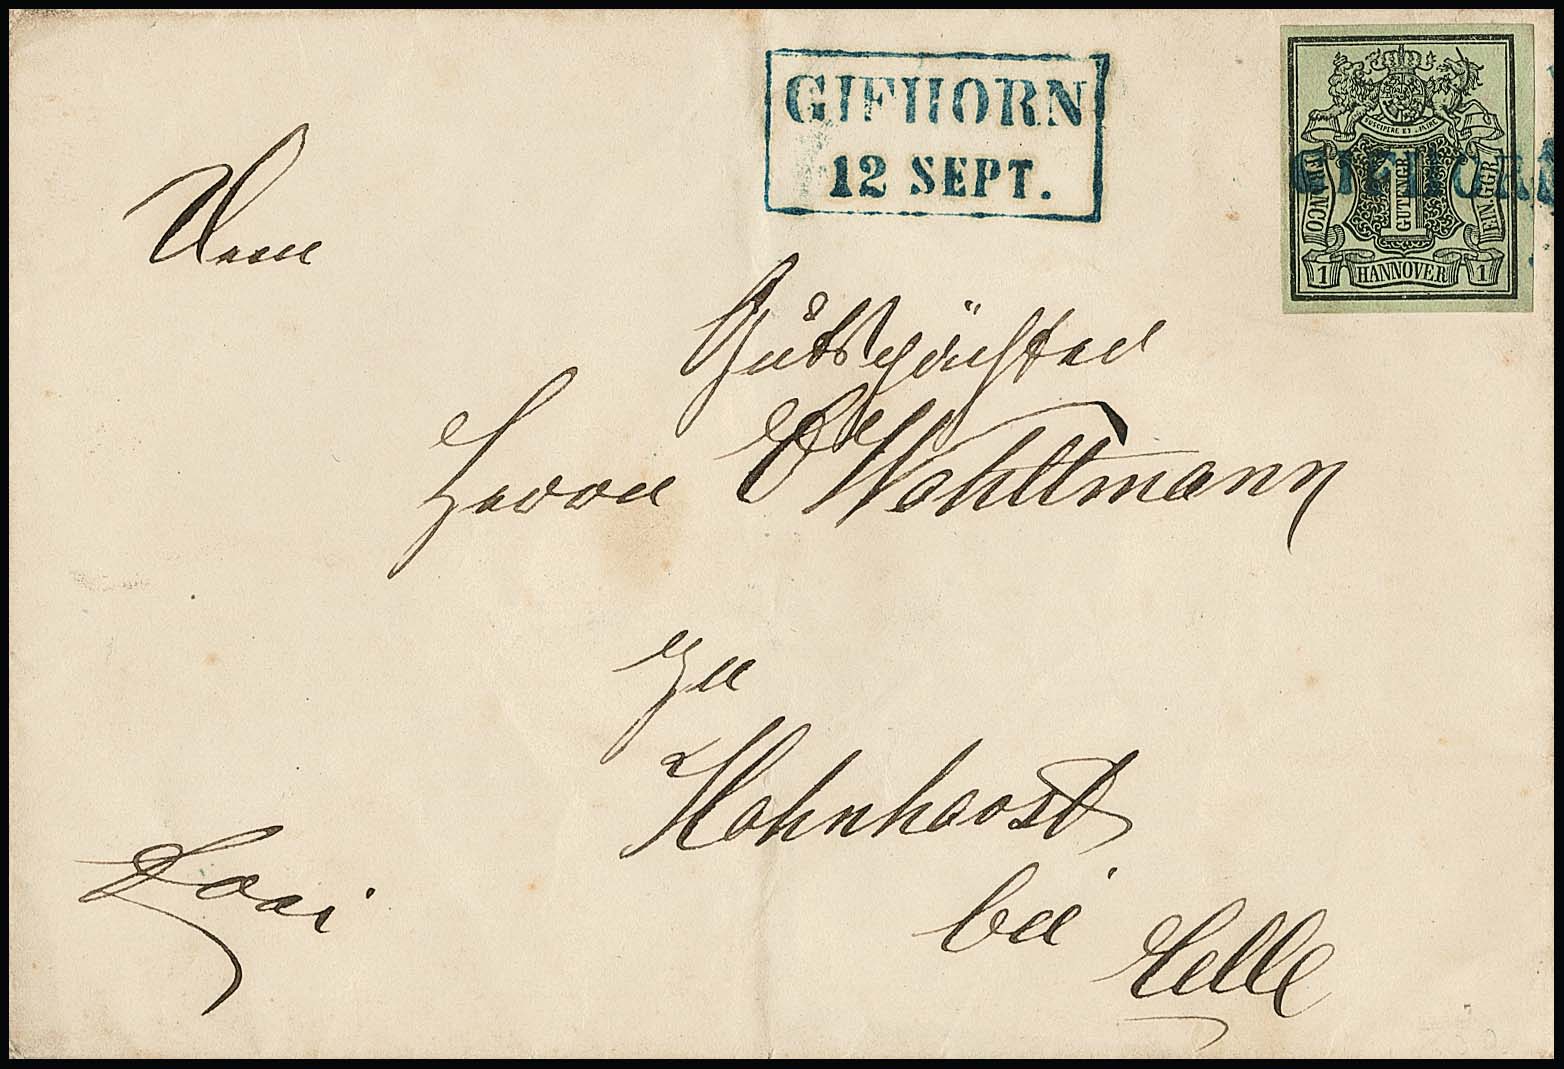 GIFHORN
12 SEPT.
SUSCIPERE ET FINIRE
GIFHORN
FRANCO
1 GUTENGR
EIN GGR
1 HANNOVER 1
Dem
Gutspächter
Herrn Wahltmann
zu
Hohnhorst
bei
Celle
frei